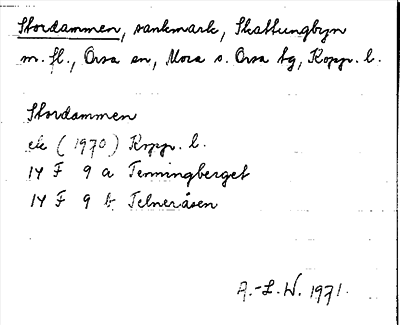 Stordammen, sankmark, Skattungbyn
m. fl., Orsa sn, Mora o. Orsa tg, Kopp. l.
Stordammen
ek (1970) Kopp. l.
14 F 9 a Tenningberget
14 F 9 b Telneråsen
A.-L.W. 1971.